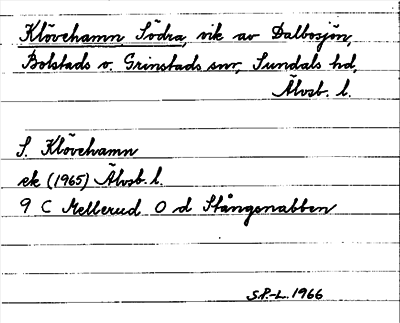 Klövehamn Södra, vik av Dalbosjön,
Bolstads o. Grinstads snr, Sundals hd,
Älvsb. l.
S. Klövehamn
ek (1965) Älvsb. l.
9 C Mellerud O d Stångsnabben
S.P.-L. 1966